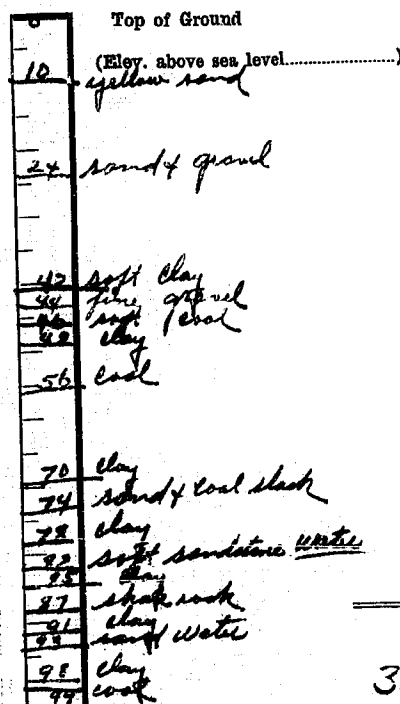 0 Top of Ground
(Elev. above sea level....................)
10 yellow sand
24 sand & gravel
42 soft clay
44 fine gravel
46 soft coal
48 clay
56 coal
70 clay
74 sand & coal slack
78 clay
82 soft sandstone water
85 clay
87 shale rock
91 clay
93 sand water
98 clay
99 coal
3